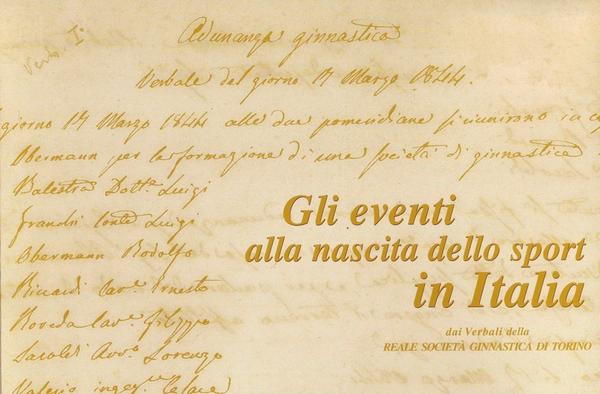 Verb. I.
Adunanza ginnastica
Verbale del giorno 17 Marzo 1844.
giorno 17 Marzo 1844 alle due pomeridiane si riunirono in
Obermann per la formazione di una società di ginnastica
Balestra Dott.e Luigi
Franchi Conte Luigi
Obermann Rodolfo
Riccardi Cav.e Ernesto
Roveda Cav.e Filippo
Saroldi Avv.o Lorenzo
Valerio ingeg.re Cesare
Gli eventi
alla nascita dello sport
in Italia
dai Verbali della
REALE SOCIETÀ GINNASTICA DI TORINO